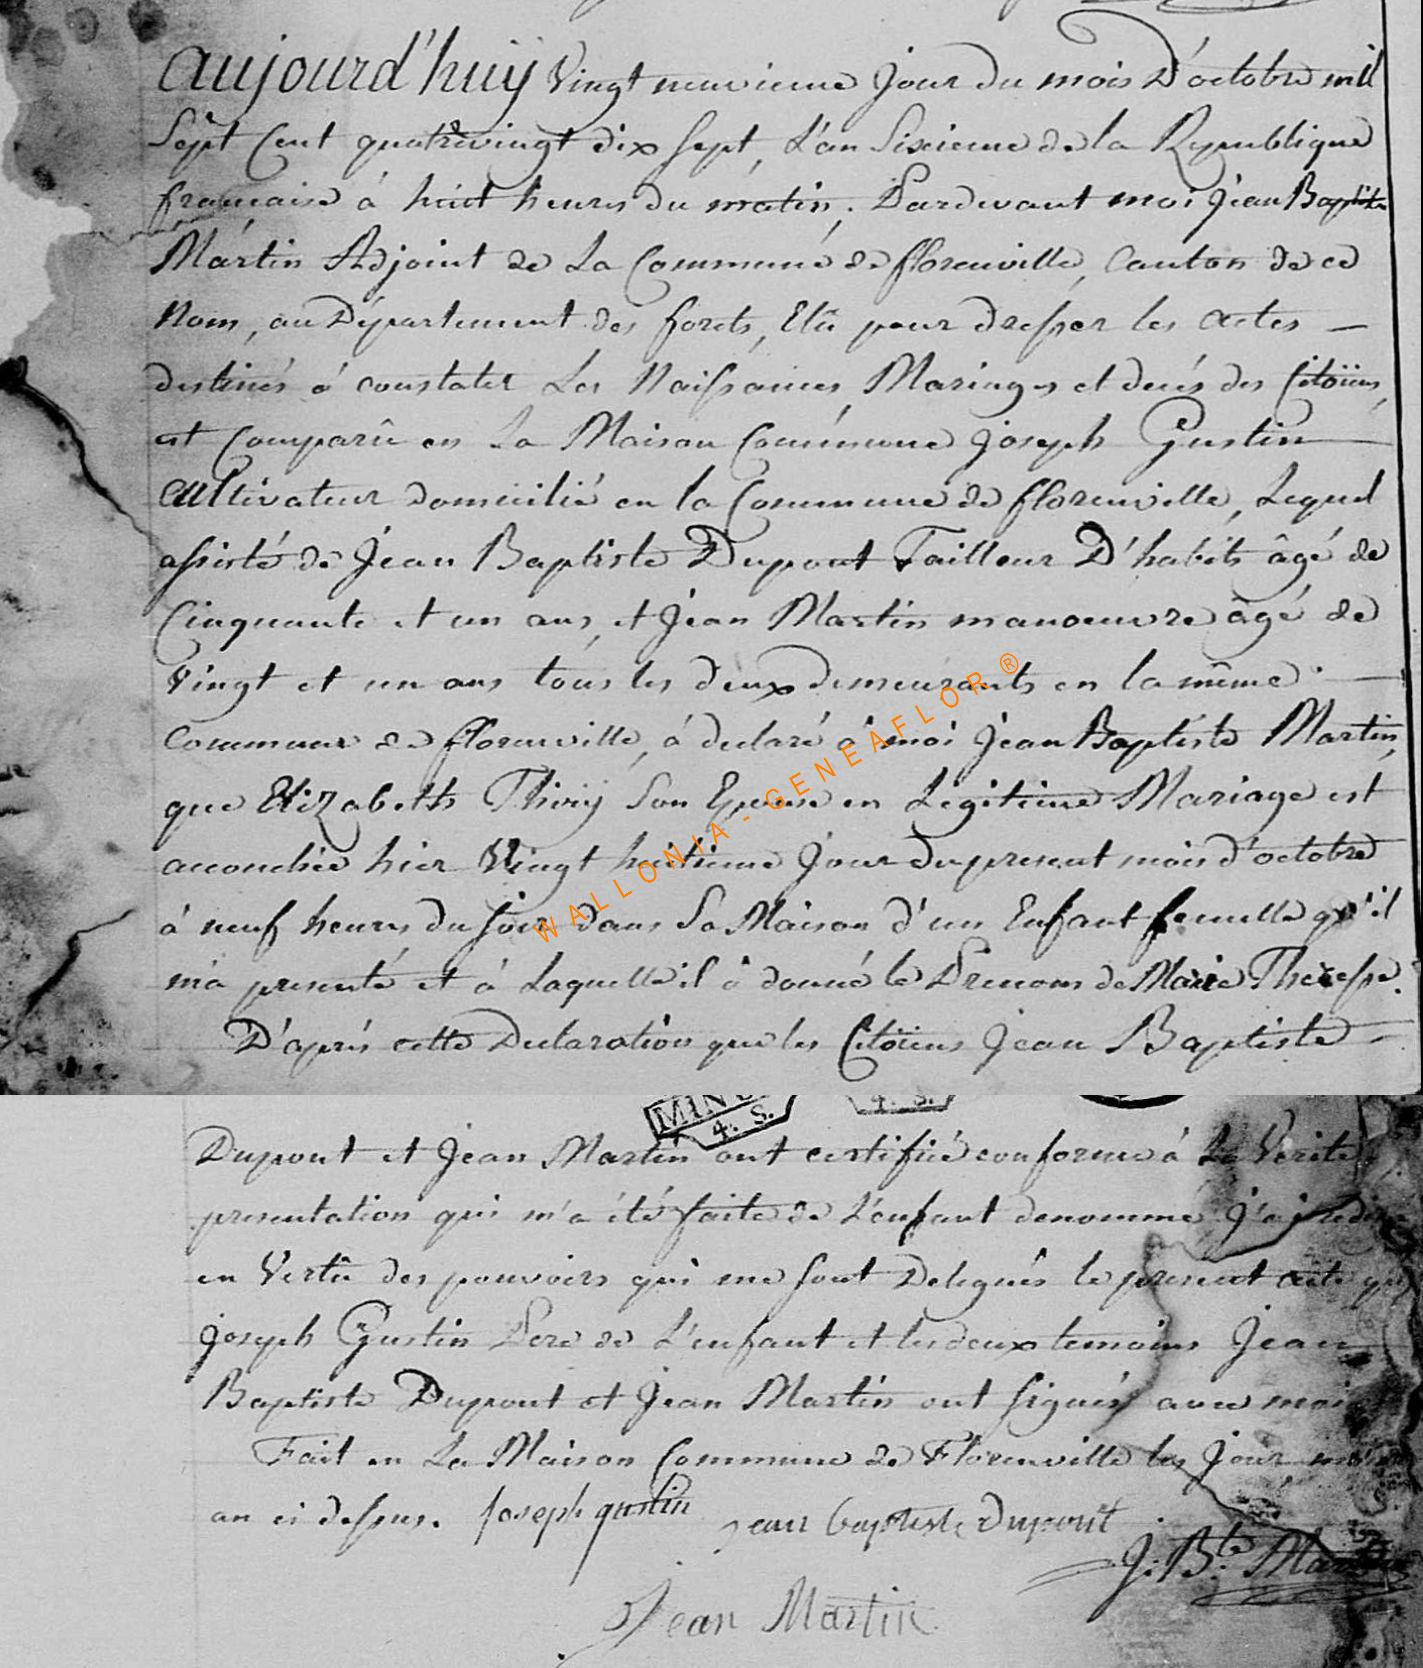 aujourd'huij Vingt neuvieme Jour du mois D'octobre mil
Sept Cent quatrevingt dix sept, L'an Sixieme de la Republique
francaise à huit heures du matin. Pardevant moi Jean Baptiste
Martin Adjoint de La Commune de florenville, Canton de ce
Nom, au Département des forets, Elû pour dresser les actes —
destinés à constater Les Naissances, Mariages et decés des Citoïens,
est Comparû en La Maison Commune Joseph Gustin
Cultivateur domicilié en la Commune de florenville, Lequel
assisté de Jean Baptiste Dupont Tailleur D'habits âgé de
Cinquante et un ans, et Jean Martin manoeuvre âgé de
Vingt et un ans tous les deux demeurants en la même —
Commune de florenville, à declaré à moi Jean Baptiste Martin,
que Elizabeth Thiry Son Epouse en Legitime Mariage est
accouchée hier Vingt huitieme Jour du present mois d'octobre
à neuf heures du soir dans Sa Maison d'un Enfant femelle qu'il
m'a presenté et à Laquelle il à donné le Prenoms de Marie Theresse.
D'aprés cette Declaration que les Citoïens Jean Baptiste
MIN
4. S.
4. S.
Dupont et Jean Martin ont certifiée conforme à La Verite
presentation qui m'a été faite de L'enfant denommé j'ai
en Vertû des pouvoirs qui me sont Delegués le present acte
Joseph Gustin Pere de L'enfant et les deux temoins Jean
Baptiste Dupont et Jean Martin ont signés avec moi
Fait en La Maison Commune de Florenville les Jour,
an ci dessus. Joseph gustin Jean baptiste Dupont
J. Bte Martin
Jean Martin
WALLONIA - GENEAFLOR ®